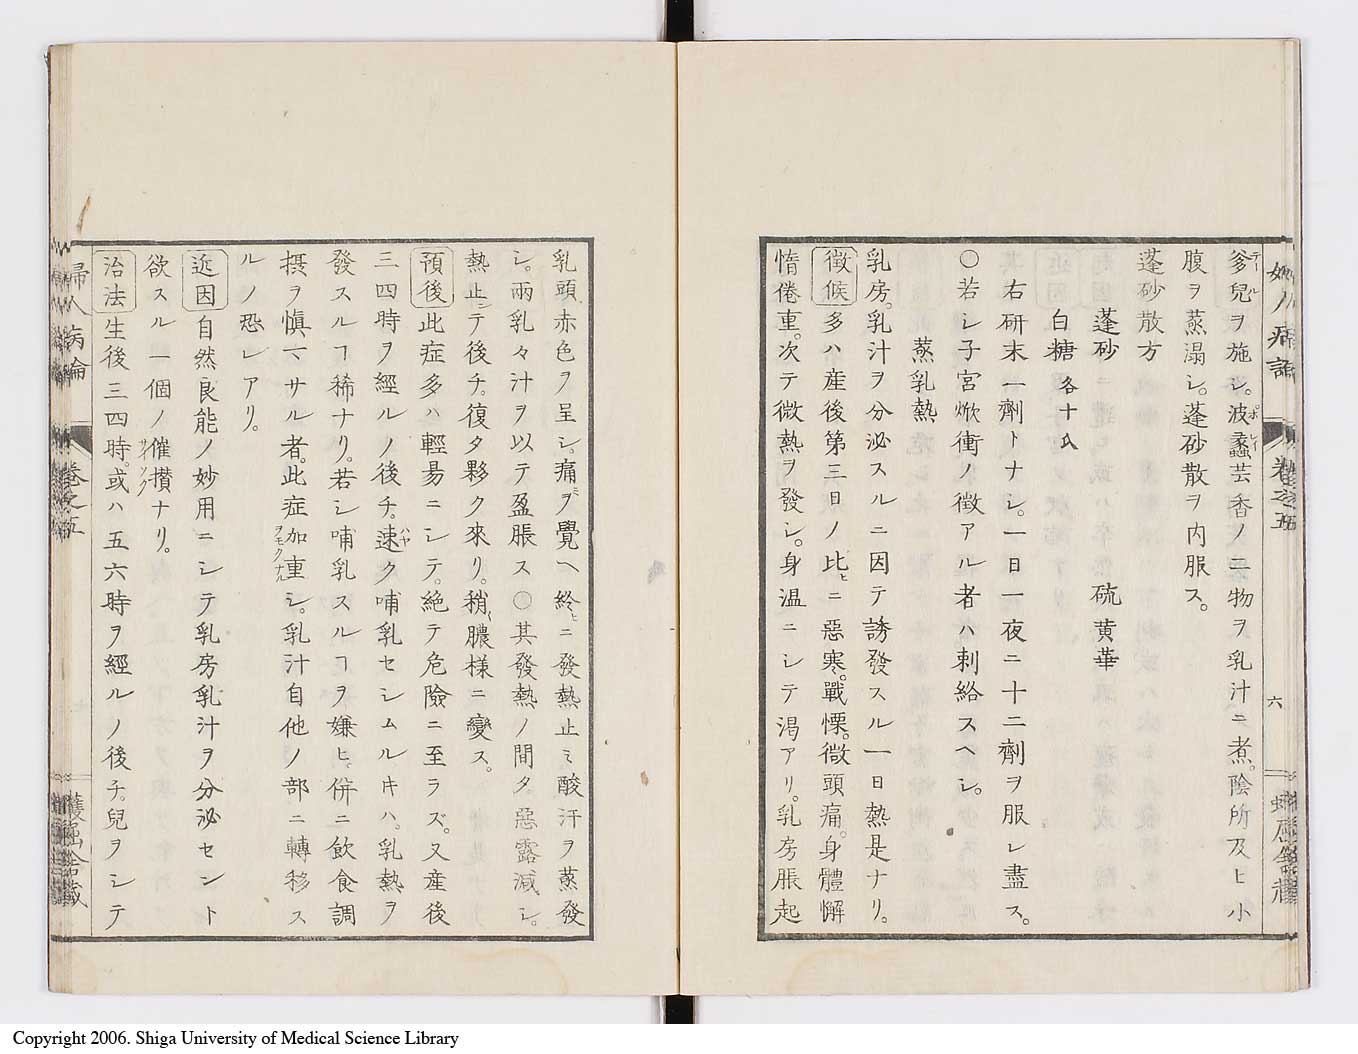 爹兒ヲ施シ。波蠡芸香ノ二物ヲ乳汁ニ煮。陰所及ヒ小
テール
ポレイ
腹ヲ蒸溻シ。蓬砂散ヲ内服ス。
蓬砂散方
蓬砂 硫黄華
白糖 各十瓜
右研末一劑トナシ。一日一夜ニ十二劑ヲ服シ盡ス。
〇若シ子宮焮衝ノ徴アル者ハ刺絡スヘシ。
蒸乳熱
乳房。乳汁ヲ分泌スルニ因テ誘發スル一日熱是ナリ。
徴候 多ハ産後第三日ノ比ヒニ惡寒。戰慄。微頭痛。身體懈
惰倦重。次テ微熱ヲ發シ。身温ニシテ渇アリ。乳房脹起
婦人病論 巻之五
六
乳頭赤色ヲ呈シ。痛ヲ覺ヘ終ヒニ發熱止ミ酸汗ヲ蒸發
シ。兩乳々汁ヲ以テ盈脹ス〇其發熱ノ間タ。惡露減シ。
熱止テ後チ。復タ夥ク來リ。稍膿樣ニ變ス。
預後 此症多ハ輕易ニシテ。絶テ危險ニ至ラズ。又産後
三四時ヲ經ルノ後チ。速ク哺乳セシムルキハ。乳熱ヲ
ハヤ
發スルヿ稀ナリ。若シ哺乳スルヿヲ嫌ヒ。併ニ飲食調
摂ヲ愼マサル者。此症加重シ。乳汁自他ノ部ニ轉移ス
ヲモクナル
ルノ恐レアリ。
近因 自然良能ノ妙用ニシテ乳房乳汁ヲ分泌セント
欲スル一個ノ催攅ナリ。
サイソク
治法 生後三四時。或ハ五六時ヲ經ルノ後チ。兒ヲシテ
婦人病論 巻之五
Copyright 2006. Shiga University of Medical Science Library